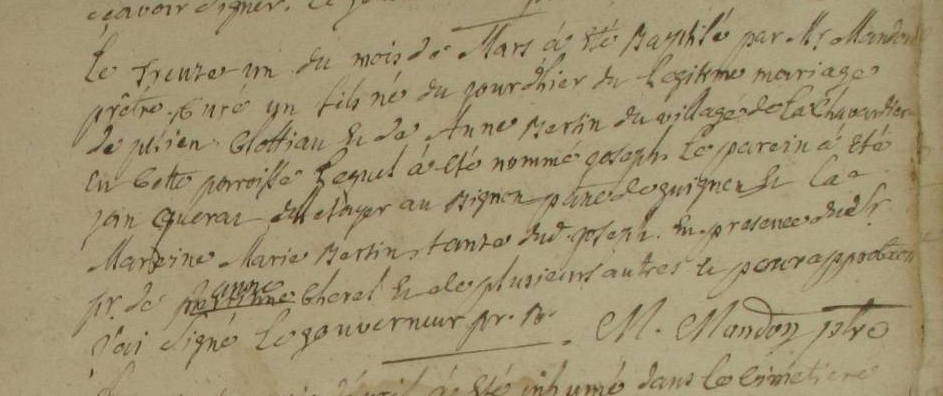 sçavoir signer. Le
Le Trente un du mois de Mars á été Baptisé par Mr Mandon
prêtre Curé un fils né du jour d'hier du legitime mariage
de julien Clottiau et de Anne Bertin du village de la Chavardier
en Cette paroisse lequel á été nommé joseph Le parein á été
jan Querar du au Bignon et la
Mareine Marie Bertin, tante dud. joseph. En presence dud. Sr
pr. de anne Cherel et de plusieurs autres et pour approbation
j'ai signé Le gouverneur pr. B. M. Mandon ptre
á été inhumé dans le cimetiere